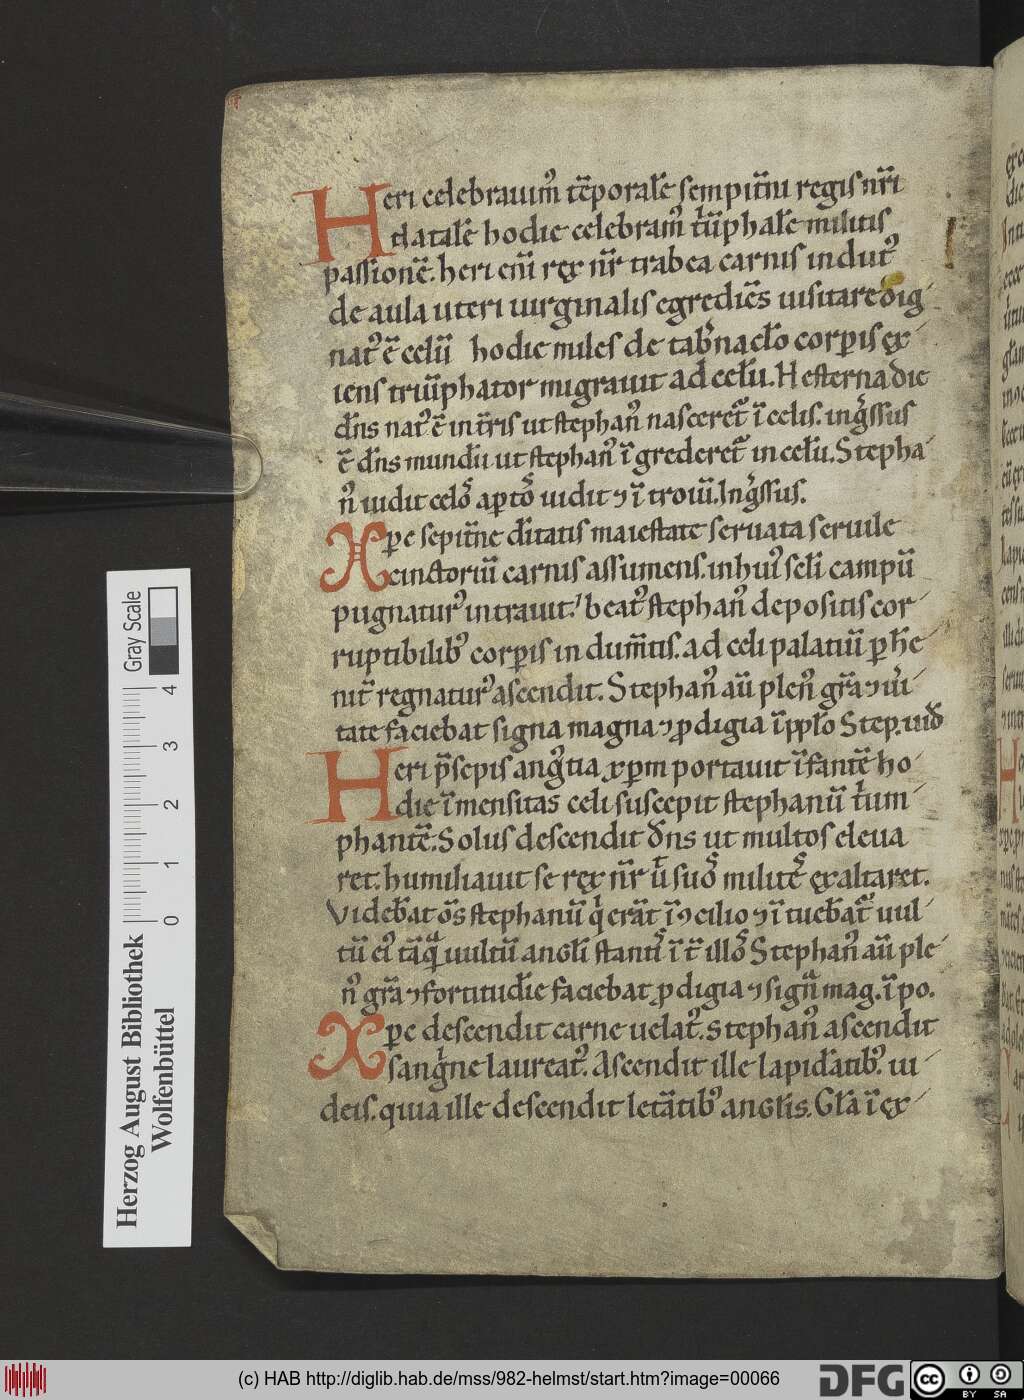 Heri celebrauim᷒ tēporalē sempit̄ni regis nr̄i
datalē hodie celebram᷒ t̄ūphalē militis
passionē. heri eni̅ rex nr̄ trabea carnis indut᷒
de aula uteri uirginalis egrediēs uisitare dig-
nat᷒ ē celū hodie miles de tab̄nacl̄o corꝑis ex-
iens triūphator migrauit ad cel̄u. Hesterna die
dn̄s nat᷒ ē in t̄ris ut stephan᷒ nasceret᷑ ī celis. ingͥssus
ē dn̄s mundū ut stephan᷒ īgrederet᷑ in cel̄u. Stepha-
n᷒ uidit celos aptos uidit ⁊ ī troiuit. Ingͥssus.
Xpe sēpit̄ne diītatis maiestate seruata seruile
cinctoriū carnis assumens. in hui᷒ scl̄i campū
pugnatur᷒ intrauit. beat᷒ stephan᷒ depositis cor-
ruptibilib᷒ corꝑis indum̄tis. ad celi palatiū ꝑhē-
nit̄ regnatur᷒ ascendit. Stephan᷒ aū plen᷒ gr̄a ⁊ ūi
tate faciebat signa magna ⁊ ꝓdigia ī ppl̄o Step. uid̄
Heri p̄sepis angͧtia xp̄m portauit īfantē ho-
die īmensitas celi suscepit stephanū t̄ium-
phantē. Solus descendit dn̄s ut multos eleua
ret. humiliauit se rex nr̄ ut̄ suos milites exaltaret.
Videb̄at oēs stephanū qͥ erāt ī ꝯcilio ⁊ ītueb̄at᷑ uul-
tū ei᷒ tāqͣ uultū angl̄i stantis īt̄ illos Stephan᷒ aū ple-
n᷒ gr̄a ⁊ fortitudīe faciebat ꝓdigia ⁊ signa mag. ī po.
Xpe descendit carne uelat᷒. stephan᷒ ascendit
sangͥne laureat᷒. Ascendit ille lapidātib᷒. iu-
deis. quia ille descendit letātib᷒ anglis. Gl̄a ī ex-
Gray Scale
0 1 2 3 4
Herzog August Bibliothek
Wolfenbüttel
(c) HAB http://diglib.hab.de/mss/982-helmst/start.htm?image=00066
DFG
cc BY SA